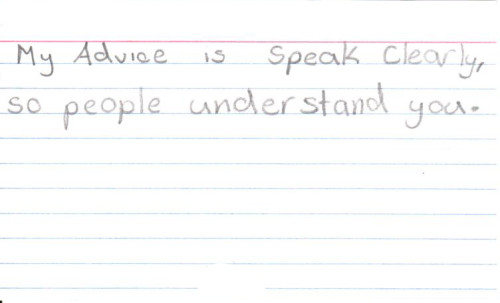 My Advice is Speak Clearly,
so people understand you.